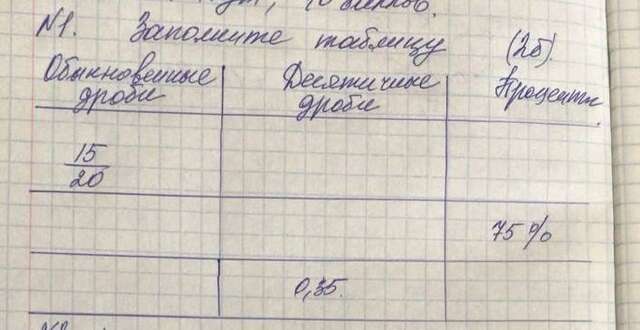 N1. Заполните таблицу (2б).
Обыкновенные дроби Десятичные дроби Проценты
15/20
75%
0,35.